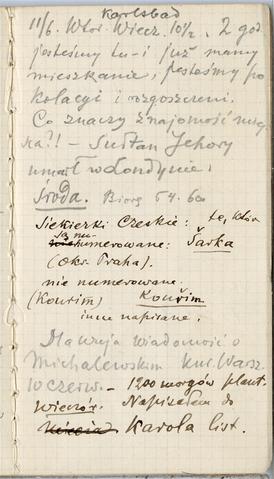 Karlsbad
11/6. Wtor. Wiecz. 10½. 2 god
jesteśmy tu i już mamy
mieszkanie, jesteśmy po
kolacyi i rozgoszczeni.
Co znaczy znajomość
ka?! – Sułtan Jehory
umarł w Londynie.
Środa. Biorę 54.60
Siekierki Czeskie: te, które
są nu-
numerowane: Šarka
(Okr. Praha).
nie numerowane.
(Kouřim) Kouřim.
inne napisane.
wiadomość o
Michalewskim kur. Warsz.
10 czerw. – 1200 morgów plant.
wieczór. Napisałem do
Karola list.